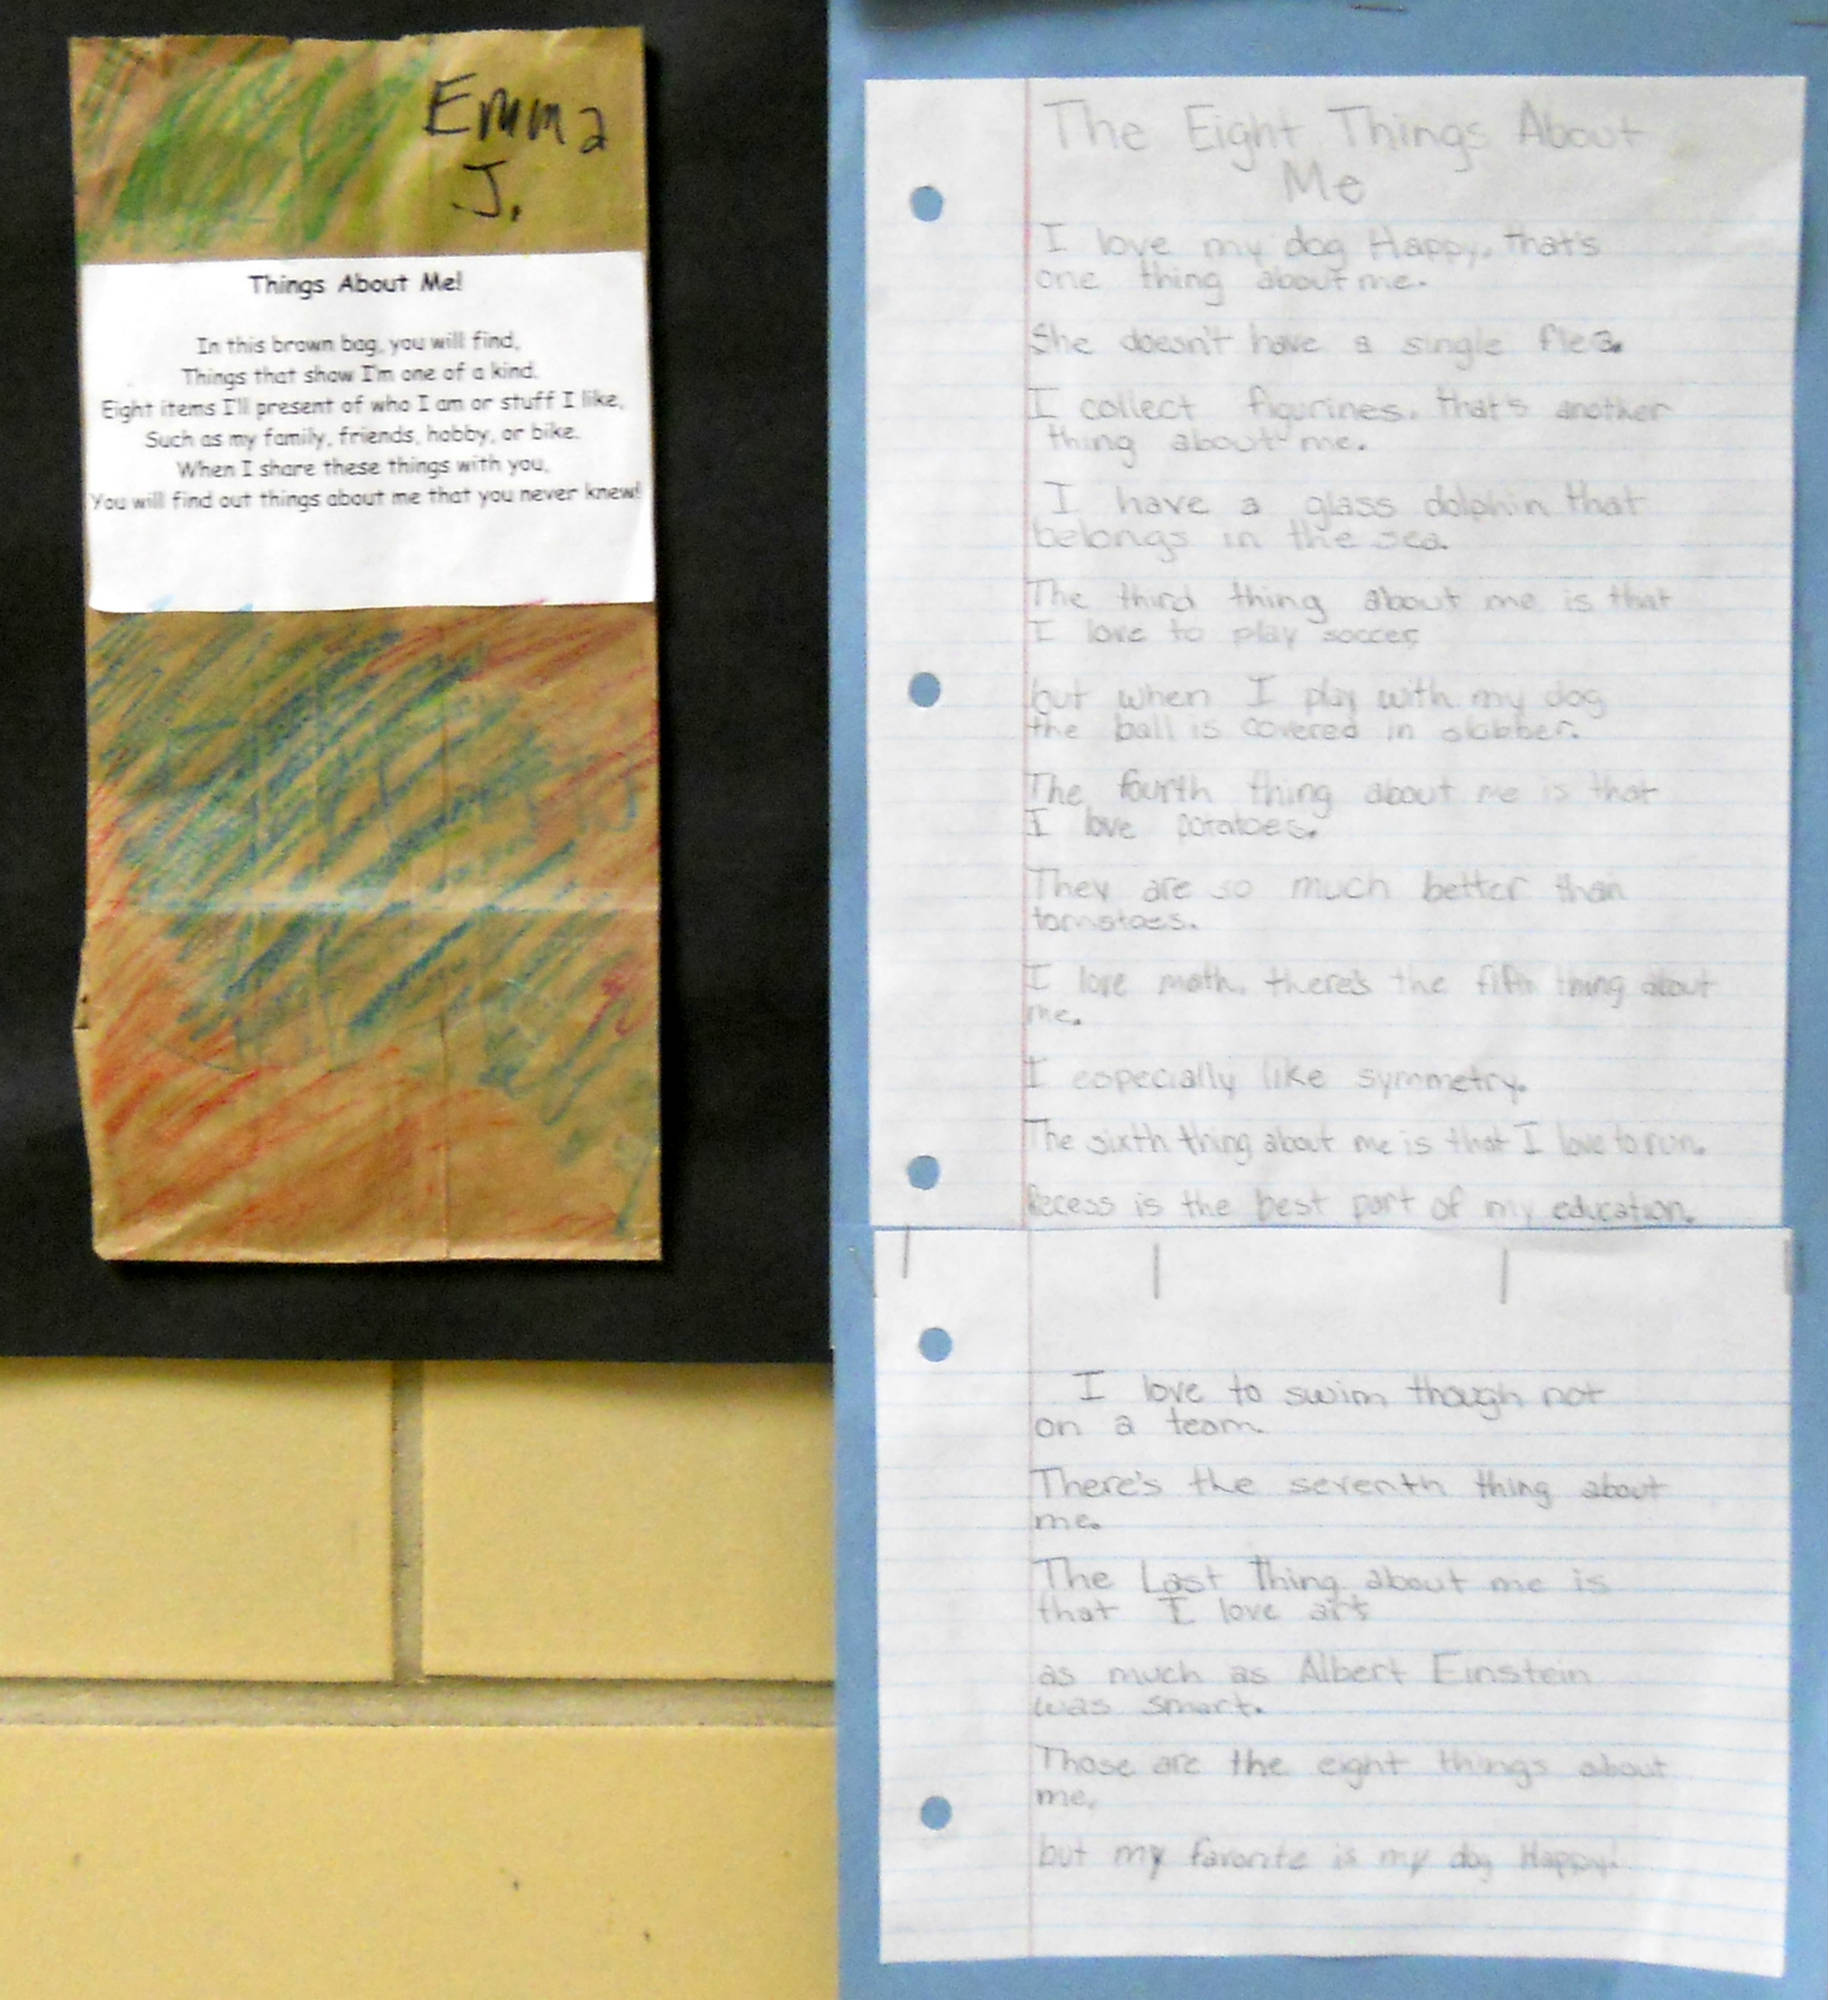 Emma
J.
Things About Me!
In this brown bag, you will find,
Things that show I'm one of a kind.
Eight items I'll present of who I am or stuff I like,
Such as my family, friends, hobby, or bike.
When I share these things with you,
You will find out things about me that you never knew!
The Eight Things About
Me
I love my dog Happy. that's
one thing about me.
She doesn't have a single flea.
I collect figurines. that's another
thing about me.
I have a glass dolphin that
belongs in the sea.
The third thing about me is that
I love to play soccer,
but when I play with my dog
the ball is covered in slobber.
The fourth thing about me is that
I love potatoes.
They are so much better than
tomatoes.
I love math. there's the fifth thing about
me.
I especially like symmetry.
The sixth thing about me is that I love to run.
Recess is the best part of my education.
I love to swim though not
on a team.
There's the seventh thing about
me.
The Last Thing about me is
that I love art
as much as Albert Einstein
was smart.
Those are the eight things about
me,
but my favorite is my dog Happy!